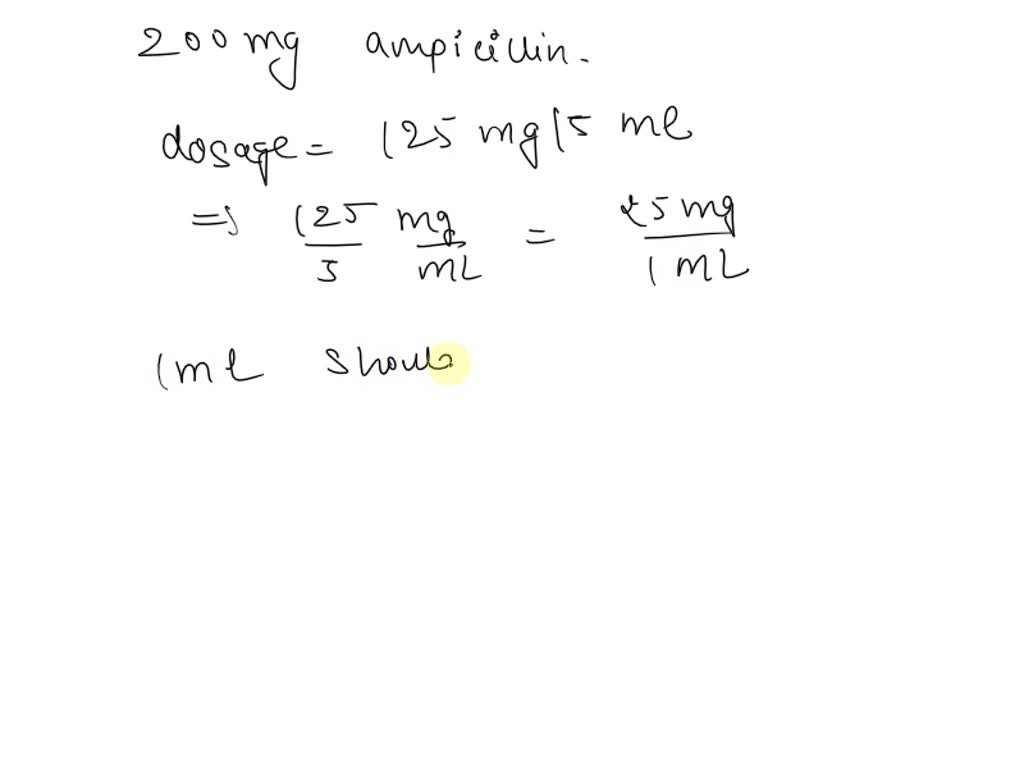 200 mg ampicillin.
dosage = 125 mg/5 ml
=> 125/5 mg/mL = 25 mg/1 mL
1ml shoul